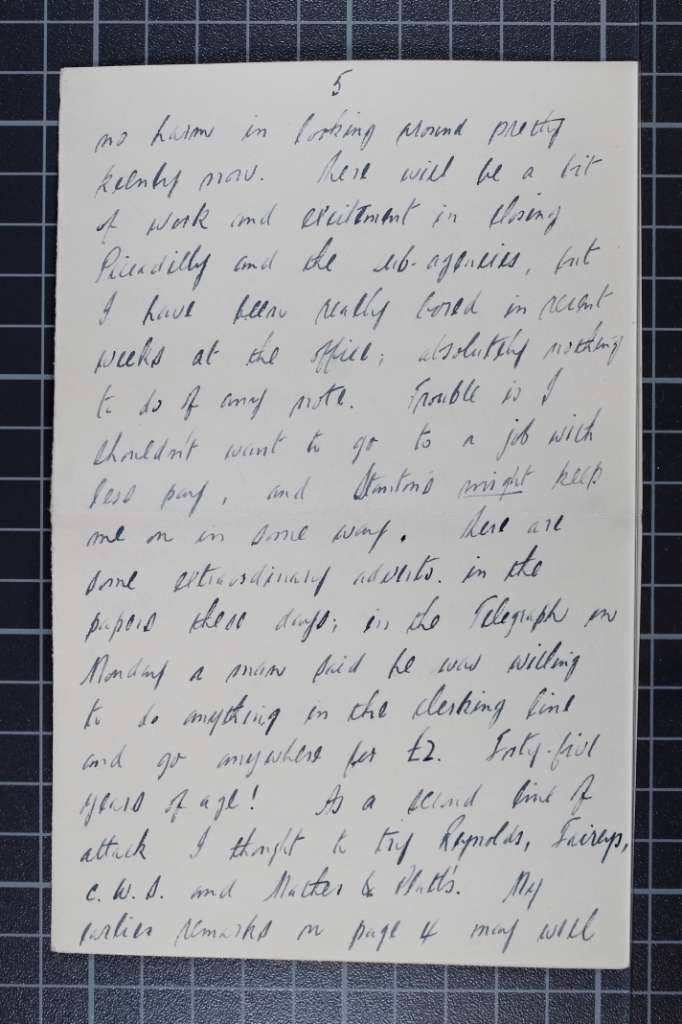 5
no harm in looking around pretty
keenly now. There will be a bit
of work and excitement in closing
Piccadilly and the sub-agencies, but
I have been really bored in recent
weeks at the office; absolutely nothing
to do of any note. Trouble is I
shouldn't want to go to a job with
less pay, and Stanton's might keep
me on in some way. There are
some extraordinary adverts. in the
papers these days; in the Telegraph on
Monday a man said he was willing
to do anything in the clerking line
and go anywhere for £2. Forty-five
years of age! As a second line of
attack I thought to try Reynolds, Faireys,
C.W.S. and Mather & Platt's. My
earlier remarks on page 4 may well